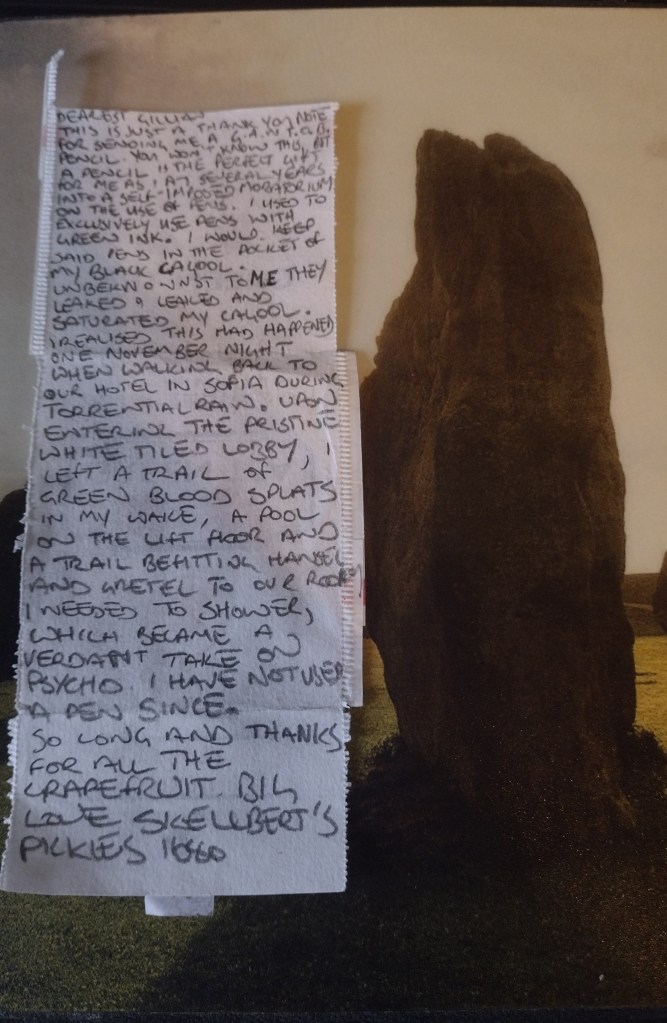 DEAREST GILLIAN
THIS IS JUST A THANK YOU NOTE
FOR SENDING ME A G.A.N.T.O.B.
PENCIL. YOU WON'T KNOW THIS, BUT
A PENCIL IS THE PERFECT GIFT
FOR ME AS I AM SEVERAL YEARS
INTO A SELF-IMPOSED MORATORIUM
ON THE USE OF PENS. I USED TO
EXCLUSIVELY USE PENS WITH
GREEN INK. I WOULD KEEP
SAID PENS IN THE POCKET OF
MY BLACK CAGOOL.
UNBEKNOWNST TO ME THEY
LEAKED & LEAKED AND
SATURATED MY CAGOOL.
I REALISED THIS HAD HAPPENED
ONE NOVEMBER NIGHT
WHEN WALKING BACK TO
OUR HOTEL IN SOFIA DURING
TORRENTIAL RAIN. UPON
ENTERING THE PRISTINE
WHITE TILED LOBBY, I
LEFT A TRAIL OF
GREEN BLOOD SPLATS
IN MY WAKE, A POOL
ON THE LIFT FLOOR AND
A TRAIL BEFITTING HANSEL
AND GRETEL TO OUR ROOM.
I NEEDED TO SHOWER,
WHICH BECAME A
VERDANT TAKE ON
PSYCHO. I HAVE NOT USED
A PEN SINCE.
SO LONG AND THANKS
FOR ALL THE
GRAPEFRUIT. BIG
LOVE SKELLBERT'S
PICKLES